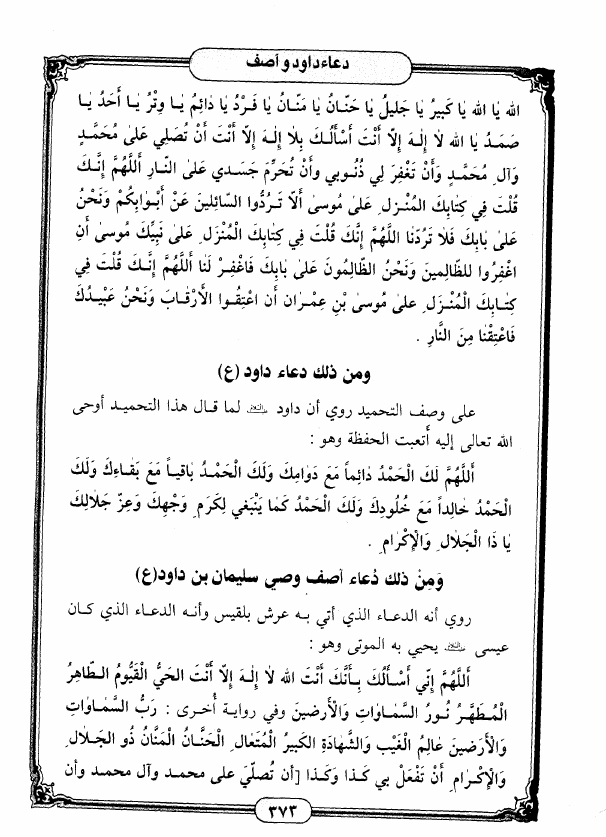 دعاء داود و آصف
الله يٰا الله يٰا كَبيرُ يٰا جَليلُ يٰا حَنّٰانُ يٰا مَنّٰانُ يٰا فَرْدُ يٰا دٰائِمُ يٰا وِتْرُ يٰا أَحَدُ يٰا
صَمَدُ يٰا الله لٰا إِلٰهَ إِلّا أَنْتَ أَسْأَلُكَ بِلٰا إِلٰهَ إِلّا أَنْتَ أَنْ تُصَلِي عَلىٰ مُحَمَّدٍ
وَآلِ مُحَمَّدٍ وَأَنْ تَغْفِرَ لِي ذُنُوبي وأَنْ تُحَرِّمَ جَسَدي عَلىَ النّٰارِ أَللّٰهُمَّ إِنَّكَ
قُلْتَ فِي كِتٰابِكَ المُنْزلِ عَلىٰ مُوسىٰ أَلّا تَرُدُّوا السّٰائِلينَ عَنْ أَبْوٰابِكُمْ وَنَحْنُ
عَلىٰ بٰابِكَ فَلٰا تَرُدَّنٰا اللّٰهُمَّ إِنَّكَ قُلْتَ فِي كِتٰابِكَ الْمُنْزَلِ عَلىٰ نَبِيِّكَ مُوسىٰ أَنِ
اغْفِرُوا للظّٰالِمينَ وَنَحْنُ الظّٰالِمُونَ عَلىٰ بٰابِكَ فَاغْفِرْ لَنٰا أَللّٰهُمَّ إِنَّكَ قُلْتَ فِي
كِتٰابِكَ الْمُنْزَلِ عَلىٰ مُوسىٰ بْنِ عِمْرٰان أَن اعْتِقُوا الأَرْقٰابَ وَنَحْنُ عَبيْدُكَ
فَاعْتِقْنٰا مِنَ النّٰارِ .
ومن ذلك دعاء داود (ع)
على وصف التحميد روي أن داود عليه السلام لما قال هذا التحميد أوحى
الله تعالى إليه أتعبت الحفظة وهو :
أَللّٰهُمَّ لَكَ الْحَمْدُ دٰائِماً مَعَ دَوٰامِكَ وَلَكَ الْحَمْدُ بٰاقياً مَعَ بَقٰاءِكَ وَلَكَ
الْحَمْدُ خٰالِداً مَعَ خُلُودِكَ وَلَكَ الْحَمْدُ كَمٰا يَنْبَغي لِكَرَمِ وَجْهِكَ وَعِزِّ جَلٰالِكَ
يٰا ذَا الْجَلٰالِ وَالْإِكْرٰامِ .
وَمِنْ ذلك دُعاء آصف وصي سليمان بن داود(ع)
روي أنه الدعاء الذي أتي به عرش بلقيس وأنه الدعاء الذي كان
عيسى عليه السلام يحيي به الموتى وهو :
أَللّٰهُمَّ إِنّي أَسْأَلُكَ بِأَنَّكَ أَنْتَ الله لٰا إِلٰهَ إِلّا أَنْتَ الحَيُّ الْقَيُّومُ الطّٰاهِرُ
الْمُطَهَّرُ نُورُ السَّمٰاوٰاتِ وَالْأَرضينَ وفي رواية أُخرى : رَبُّ السَّمٰاوٰاتِ
وَالْأَرَضينَ عٰالِمُ الْغَيْبِ وَالشَّهٰادَةِ الكَبيرُ المُتَعٰالِ الْحَنّٰانُ المَنّٰانُ ذُو الجَلٰالِ
وَالْإِكْرٰامِ أَنْ تَفْعَلَ بي كَذٰا وَكَذٰا [أن تُصلّي على محمد وآل محمد وأن
٣٧٣